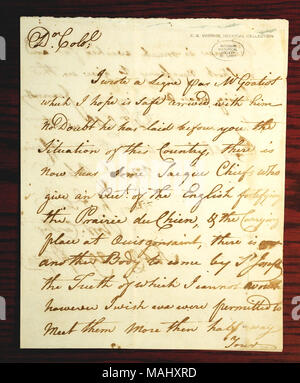 Dr. Colol,
I wrote a Ligne par Mr Gratiot
which I hope is safe arrived with him
no Doubt he has laid before you the
Situation of this Country, there is
now hear Some Saques Chiefs who
give an Act. of the English fortifying
the Prairie du Chien, & the Carrying
place at Ouisgonsaint, there is
another to come by St. Joseph
the Truth of which I cannot
however I wish we were permitted to
meet them more then half way
Your
alamy
Image ID: MAHXRD
www.alamy.com